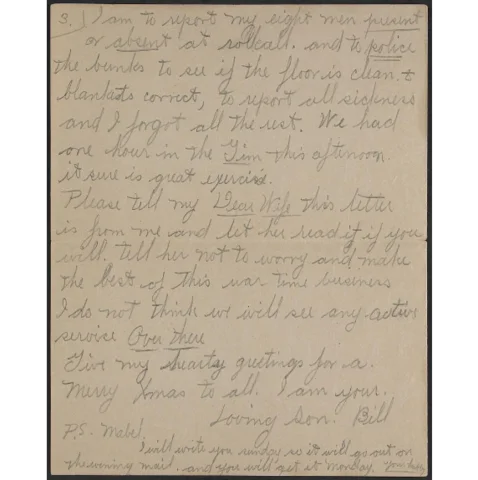 3. I am to report my eight men present
or absent at rollcall. and to police
the bunks to see if the floor is clean. &
blankets correct, to report all sickness
and I forgot all the rest. We had
one hour in the Gim this afternoon.
it sure is great exercise.
Please tell my Dear Wife this letter
is from me and let her read it if you
will. tell her not to worry and make
the best of this war time business
I do not think we will see any active
service Over there
Give my hearty greetings for a
Merry Xmas to all. I am your.
Loving Son. Bill
P.S. Mabel
I will write you sunday so it will go out on
the evening mail. and you will get it Monday. Your